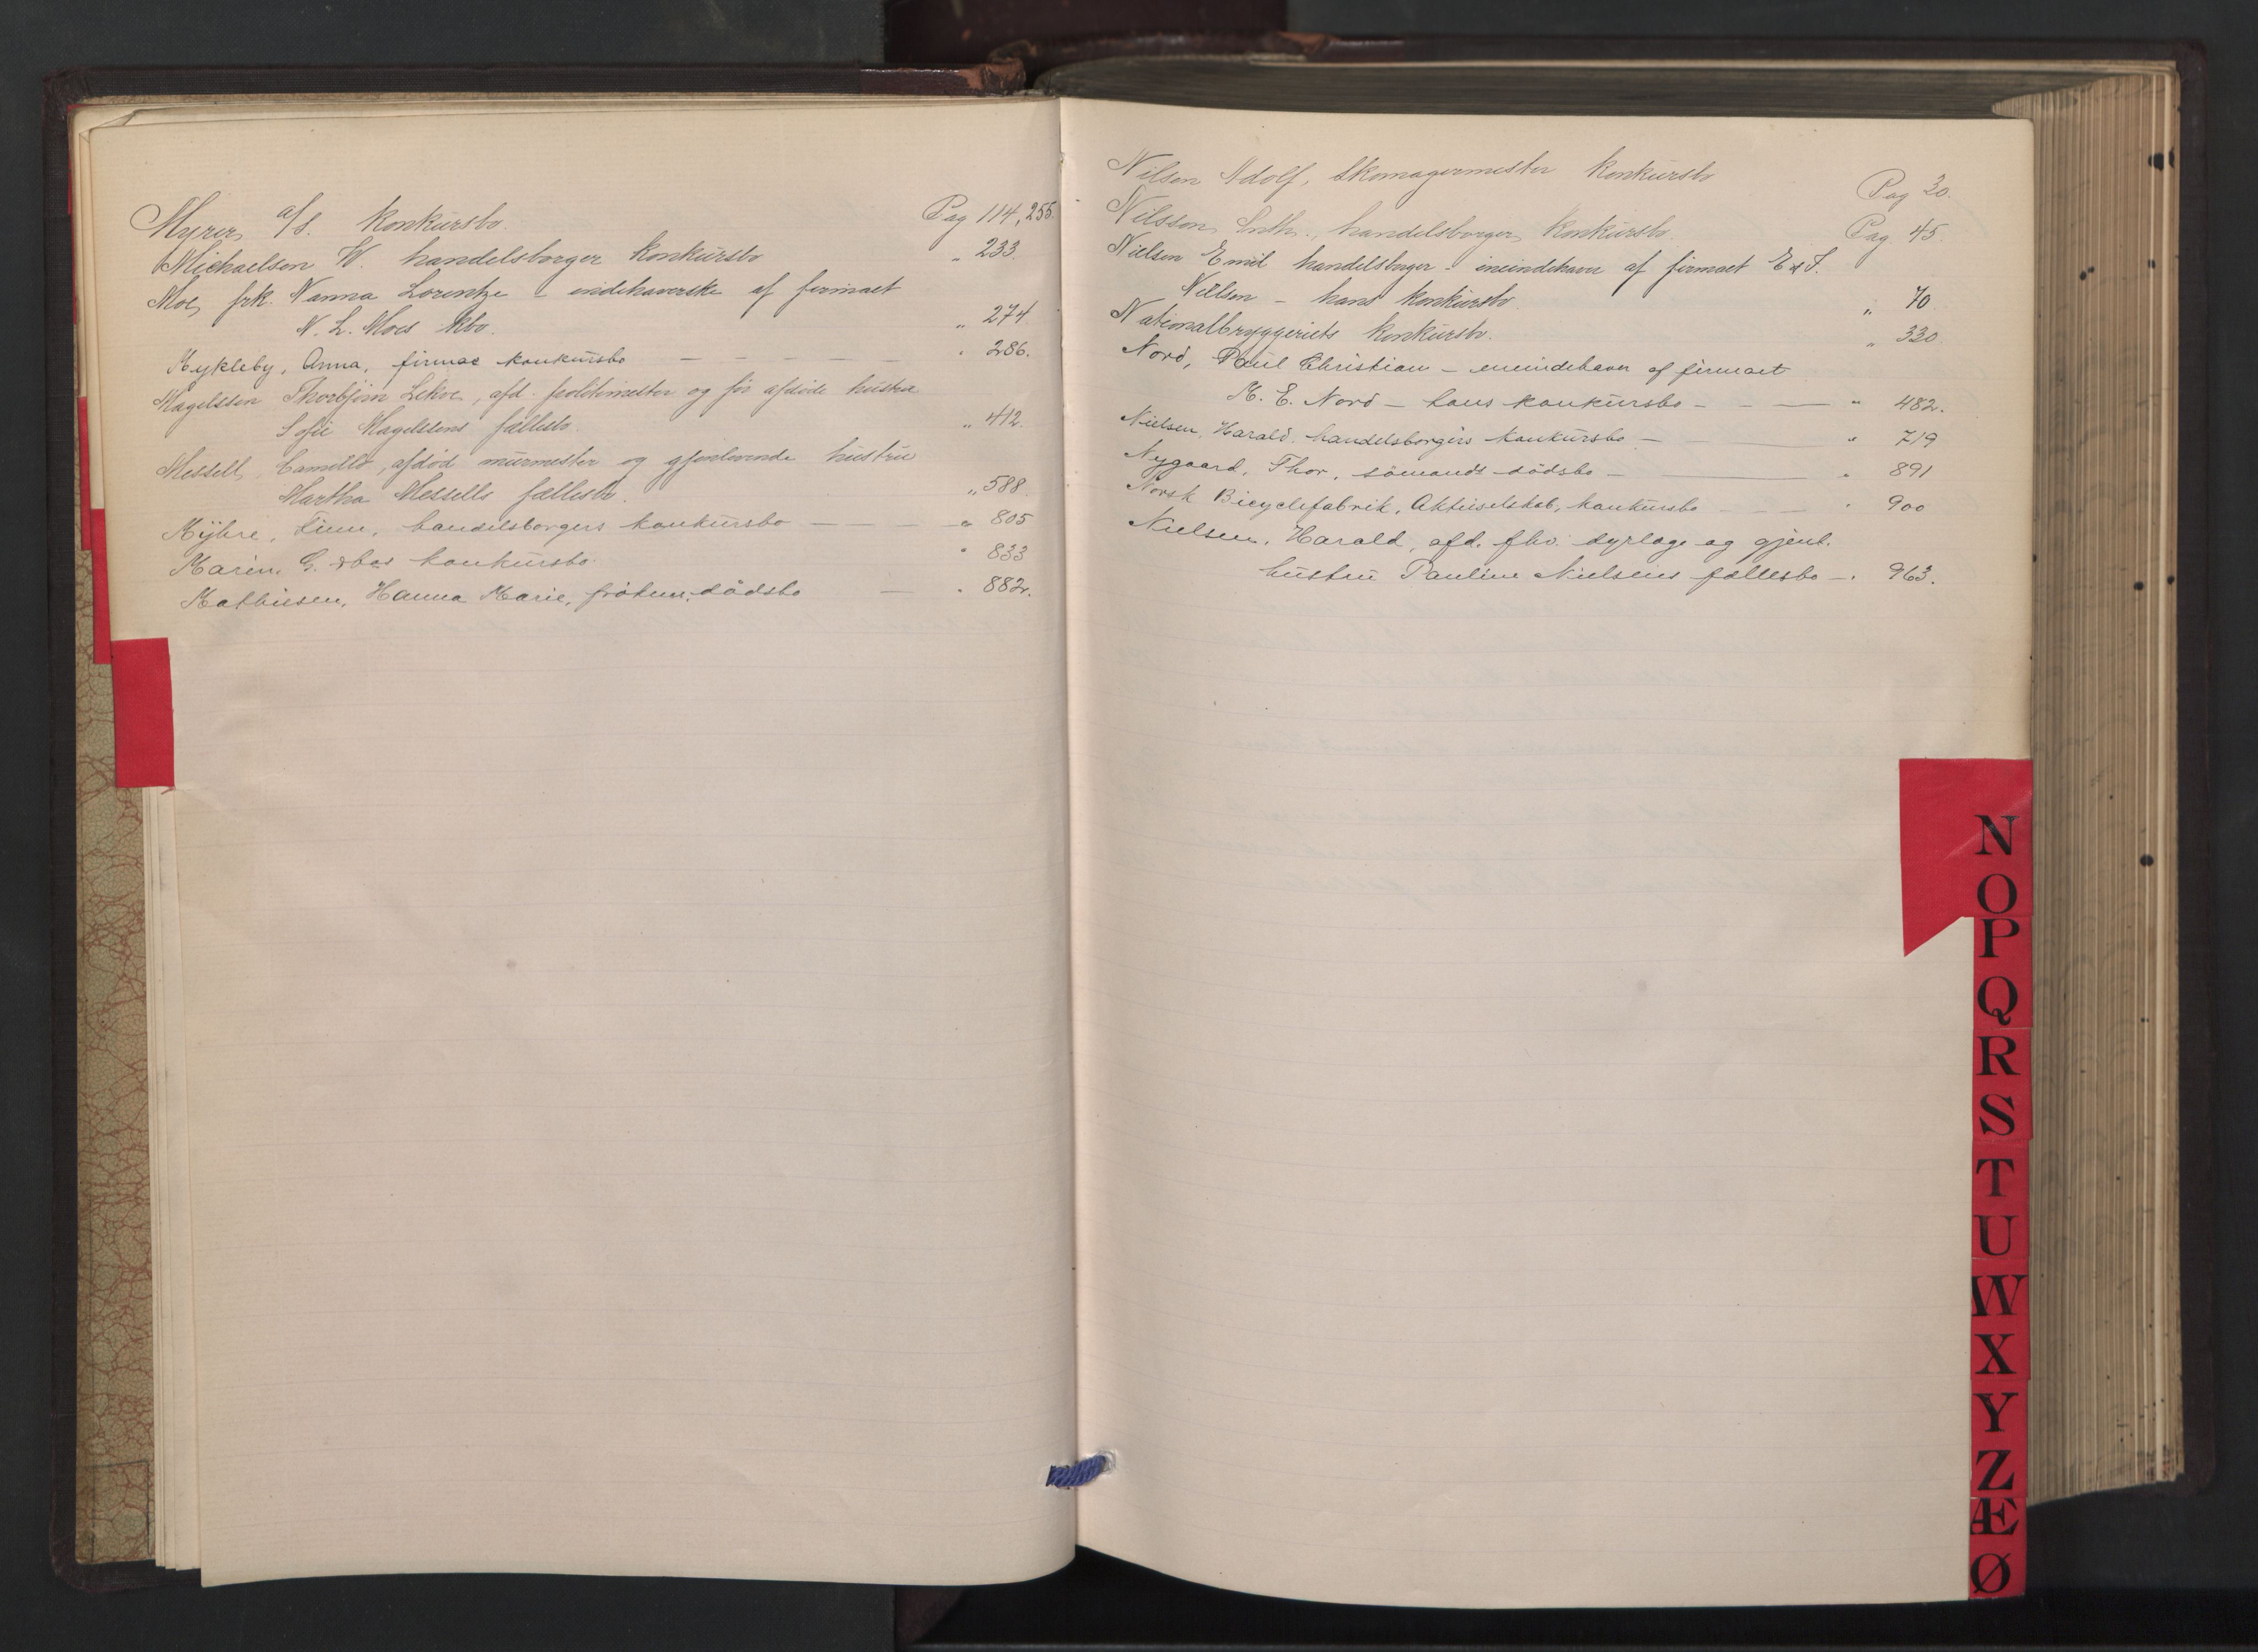 Myrer, a/s. konkursbo. Pag 114, 255.
Michaelsen W. handelsborger konkursbo „ 233.
Moe, frk. Nanna Lorentze – indehaverske af firmaet
N. L. Moes kbo. „ 274.
Mykleby, Anna, firmae konkursbo — — — — — „ 286.
Magelssen Thorbjørn Lekve, afd. politimester og før afdøde hustru
Sofie Magelssens fællesbo. „ 412.
Messell, Camillo, afdød murmester og gjenlevende hustru
Martha Messells fællesbo. „ 588.
Myhre, Finn, handelsborgers konkursbo — — „ 805
Marin, G. konkursbo. „ 833
Mathiesen, Hanna Marie, frøken, dödsbo — „ 882.
Nilsen Adolf, Skomagermester konkursbo Pag 20.
Nilsson, handelsborger, konkursbo. Pag. 45.
Nielsen Emil handelsborger – eneindehaver af firmaet E & S.
Nielsen – hans konkursbo. „ 70
Nationalbryggeriets konkursbo. „ 330
Nord, Paul Christian – eneindehaver af firmaet
M. E. Nord – hans konkursbo – — — „ 482.
Nielsen, Harald, handelsborgers konkursbo — — „ 719
Nygaard, Thor, sömands dödsbo — — „ 891
Norsk Bicyclefabrik, Aktieselskab, konkursbo — — „ 900
Nielsen, Harald, afd. fhv. dyrlæge og gjenl.
hustru Pauline Nielsens fællesbo — „ 963.
N
O
P
Q
R
S
T
U
W
X
Y
Z
Æ
Ø